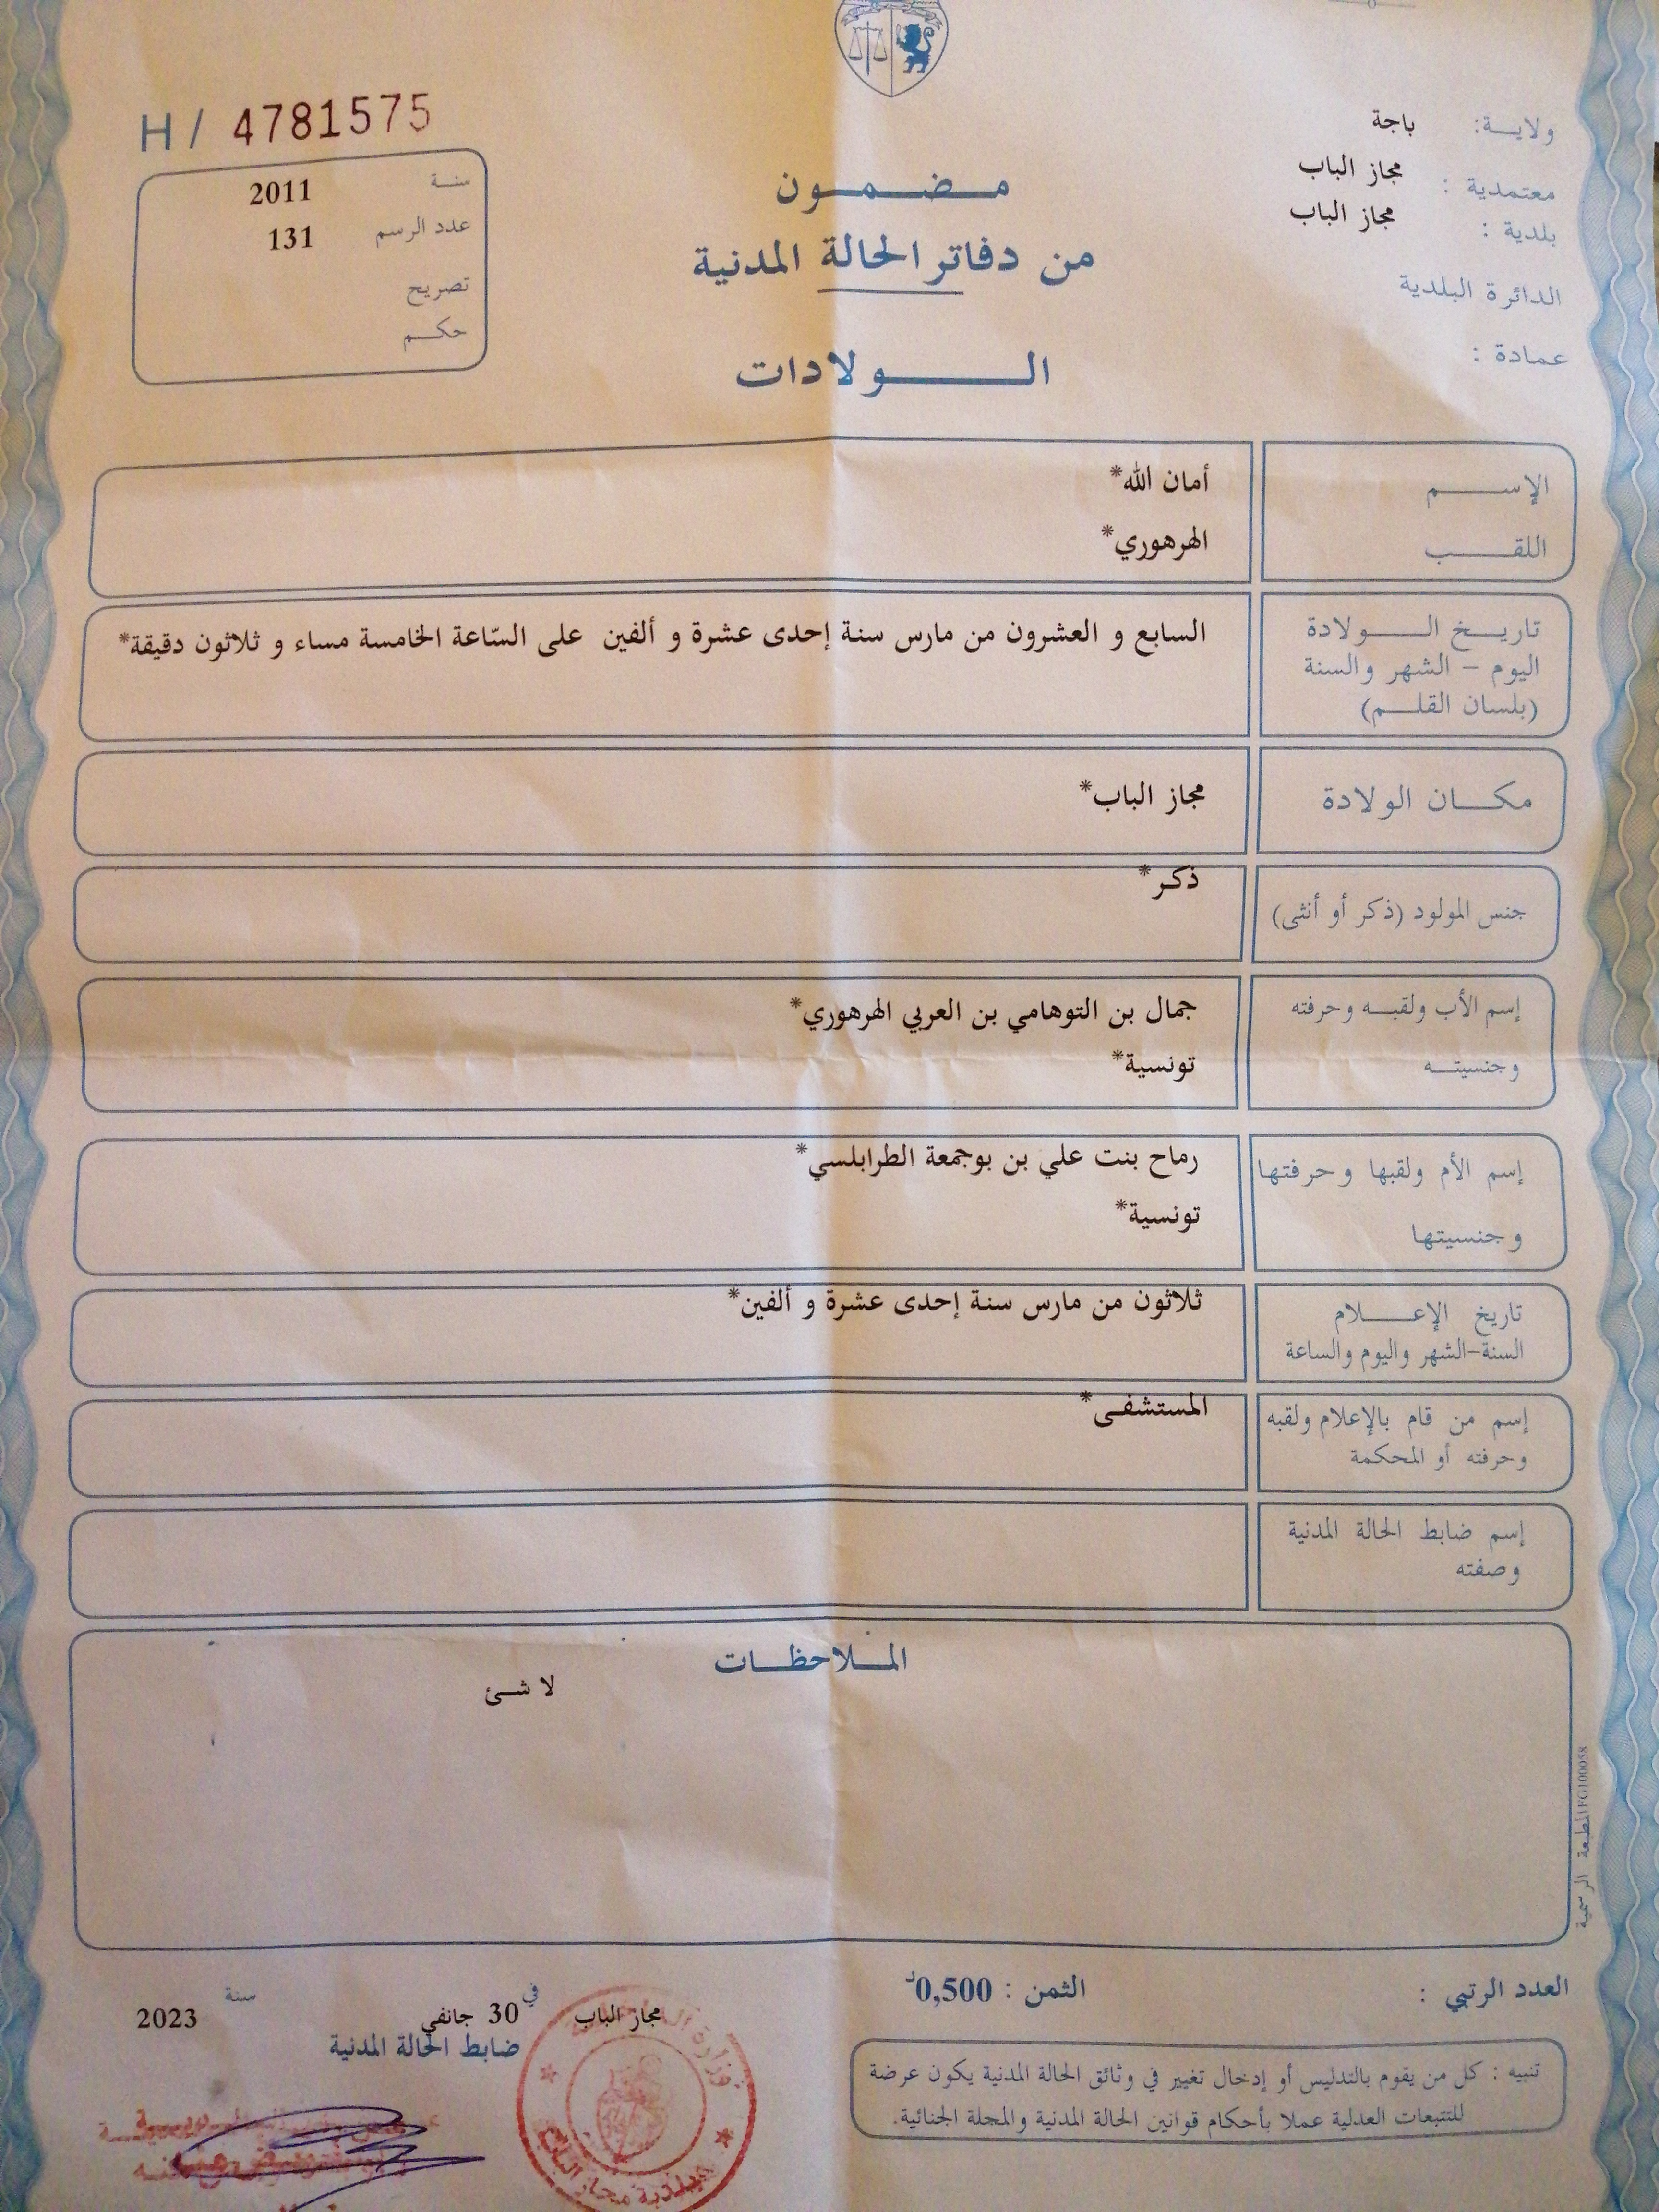 H / 4781575
ولايـــة: باجة
معتمدية : مجاز الباب
بلدية : مجاز الباب
الدائرة البلدية
عمادة :
سنـة 2011
عدد الرسم 131
تصريح
حكـم
مـضـمـون
من دفاتر الحالة المدنية
الـولادات
الإســـم أمان الله*
اللقـــب الهرهوري*
تاريـخ الـــولادة السابع و العشرون من مارس سنة إحدى عشرة و ألفين على السّاعة الخامسة مساء و ثلاثون دقيقة*
اليوم – الشهر والسنة
(بلسان القلـم)
مكـــان الولادة مجاز الباب*
جنس المولود (ذكر أو أنثى) ذكر*
إسم الأب ولقبـه وحرفته جمال بن التوهامي بن العربي الهرهوري*
وجنسيتـه تونسية*
إسم الأم ولقبها وحرفتها رماح بنت علي بن بوجمعة الطرابلسي*
وجنسيتها تونسية*
تاريخ الإعـــلام ثلاثون من مارس سنة إحدى عشرة و ألفين*
السنة-الشهر واليوم والساعة
إسم من قام بالإعلام ولقبه المستشفى*
وحرفته أو المحكمة
إسم ضابط الحالة المدنية
وصفته
المـلاحظـات
لا شئ
المطبعة الرسمية IFG100058
العدد الرتبي :
الثمن : 0,500د
مجاز الباب في 30 جانفي سنة 2023
ضابط الحالة المدنية
تنبيه : كل من يقوم بالتدليس أو إدخال تغيير في وثائق الحالة المدنية يكون عرضة
للتتبعات العدلية عملا بأحكام قوانين الحالة المدنية والمجلة الجنائية.
وزارة
بلدية مجاز الباب